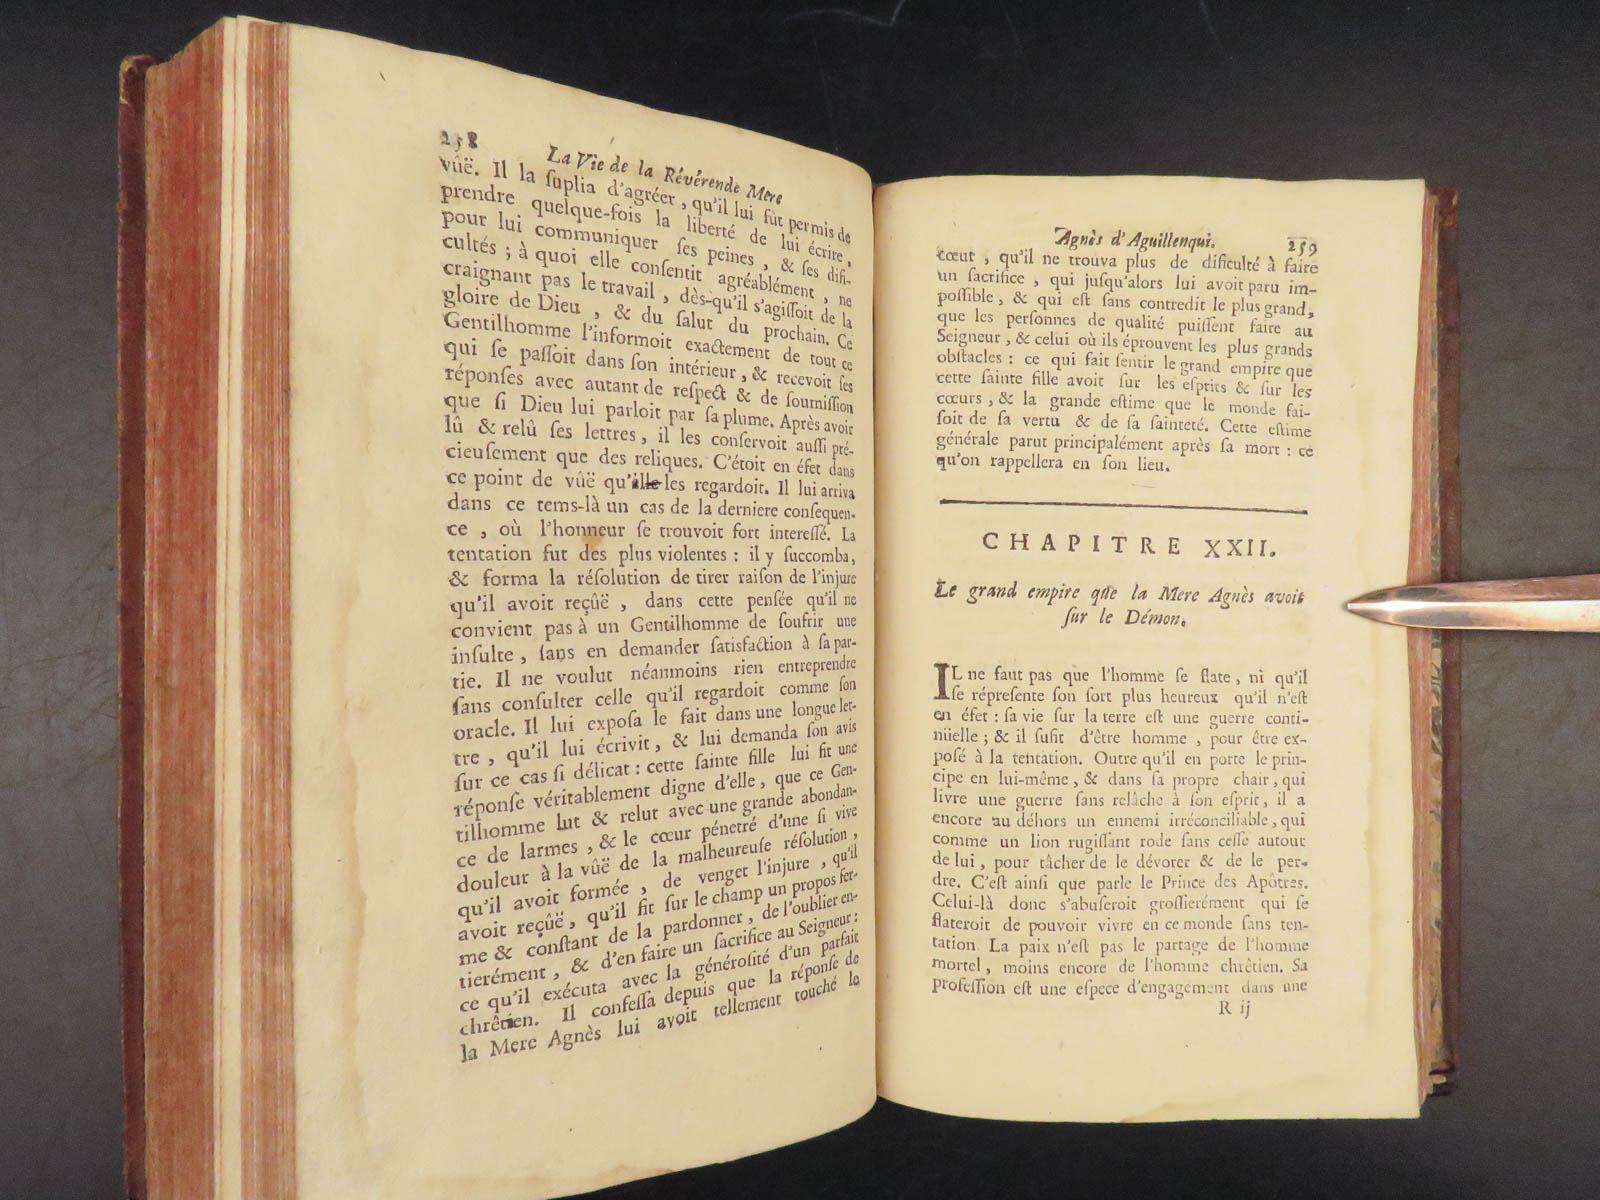 258 La Vie de la Révérende Mere
vûë. Il la ſuplia d'agréer, qu'il lui fût permis de
prendre quelque-fois la liberté de lui écrire,
pour lui communiquer ſes peines, & ſes difi-
cultés ; à quoi elle conſentit agréablement, ne
craignant pas le travail, dès-qu'il s'agiſſoit de la
gloire de Dieu, & du ſalut du prochain. Ce
Gentilhomme l'informoit exactement de tout ce
qui ſe paſſoit dans ſon intérieur, & recevoit ſes
réponſes avec autant de reſpect & de ſoumiſſion
que ſi Dieu lui parloit par ſa plume. Après avoir
lû & relû ſes lettres, il les conſervoit auſſi pré-
cieuſement que des reliques. C'étoit en éfet dans
ce point de vûë qu'il les regardoit. Il lui arriva
dans ce tems-là un cas de la derniere conſequen-
ce, où l'honneur ſe trouvoit fort intereſſé. La
tentation fut des plus violentes : il y ſuccomba,
& forma la réſolution de tirer raiſon de l'injure
qu'il avoit reçûë, dans cette penſée qu'il ne
convient pas à un Gentilhomme de ſoufrir une
inſulte, ſans en demander ſatisfaction à ſa par-
tie. Il ne voulut néanmoins rien entreprendre
ſans conſulter celle qu'il regardoit comme ſon
oracle. Il lui expoſa le fait dans une longue let-
tre, qu'il lui écrivit, & lui demanda ſon avis
ſur ce cas ſi délicat : cette ſainte fille lui fit une
réponſe véritablement digne d'elle, que ce Gen-
tilhomme lut & relut avec une grande abondan-
ce de larmes, & le cœur pénetré d'une ſi vive
douleur à la vûë de la malheureuſe réſolution,
qu'il avoit formée, de venger l'injure, qu'il
avoit reçûë, qu'il fit ſur le champ un propos fer-
me & conſtant de la pardonner, de l'oublier en-
tierément, & d'en faire un ſacrifice au Seigneur :
ce qu'il exécuta avec la généroſité d'un parfait
chrêtien. Il confeſſa depuis que la réponſe de
la Mere Agnès lui avoit tellement touché le
Agnès d'Aguillenqui. 259
cœur, qu'il ne trouva plus de dificulté à faire
un ſacrifice, qui juſqu'alors lui avoit paru im-
poſſible, & qui eſt ſans contredit le plus grand,
que les perſonnes de qualité puiſſent faire au
Seigneur, & celui où ils éprouvent les plus grands
obſtacles : ce qui fait ſentir le grand empire que
cette ſainte fille avoit ſur les eſprits & ſur les
cœurs, & la grande eſtime que le monde fai-
ſoit de ſa vertu & de ſa ſainteté. Cette eſtime
générale parut principalément après ſa mort : ce
qu'on rappellera en ſon lieu.
CHAPITRE XXII.
Le grand empire que la Mere Agnès avoit
ſur le Démon.
IL ne faut pas que l'homme ſe flate, ni qu'il
ſe répreſente ſon ſort plus heureux qu'il n'eſt
en éfet : ſa vie ſur la terre eſt une guerre conti-
nüelle ; & il ſufit d'être homme, pour être ex-
poſé à la tentation. Outre qu'il en porte le prin-
cipe en lui-même, & dans ſa propre chair, qui
livre une guerre ſans relâche à ſon eſprit, il a
encore au déhors un ennemi irréconciliable, qui
comme un lion rugiſſant rode ſans ceſſe autour
de lui, pour tâcher de le dévorer & de le per-
dre. C'eſt ainſi que parle le Prince des Apôtres.
Celui-là donc s'abuſeroit groſſierément qui ſe
flateroit de pouvoir vivre en ce monde ſans ten-
tation. La paix n'eſt pas le partage de l'homme
mortel, moins encore de l'homme chrêtien. Sa
profeſſion eſt une eſpece d'engagement dans une
R ij